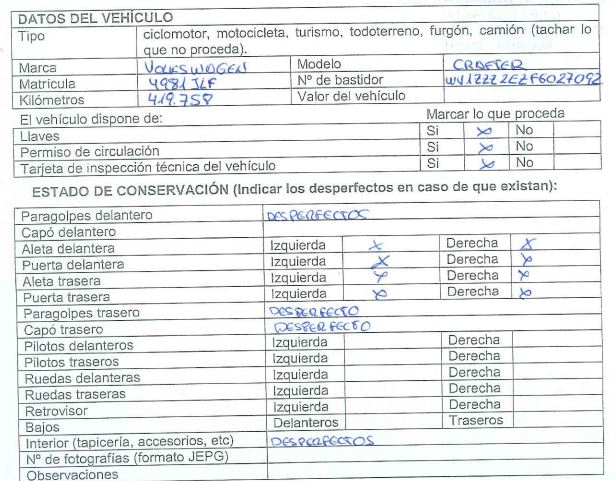 DATOS DEL VEHÍCULO
Tipo ciclomotor, motocicleta, turismo, todoterreno, furgón, camión (tachar lo
que no proceda).
Marca VOLKSWAGEN Modelo CRAFTER
Matrícula 4981JLF Nº de bastidor WV1ZZZ2EZF6027092
Kilómetros 419.758 Valor del vehículo
El vehículo dispone de: Marcar lo que proceda
Llaves Si X No
Permiso de circulación Si X No
Tarjeta de inspección técnica del vehículo Si X No
ESTADO DE CONSERVACIÓN (Indicar los desperfectos en caso de que existan):
Paragolpes delantero DESPERFECTOS
Capó delantero
Aleta delantera Izquierda X Derecha X
Puerta delantera Izquierda X Derecha X
Aleta trasera Izquierda X Derecha X
Puerta trasera Izquierda X Derecha X
Paragolpes trasero DESPERFECTO
Capó trasero DESPERFECTO
Pilotos delanteros Izquierda Derecha
Pilotos traseros Izquierda Derecha
Ruedas delanteras Izquierda Derecha
Ruedas traseras Izquierda Derecha
Retrovisor Izquierda Derecha
Bajos Delanteros Traseros
Interior (tapicería, accesorios, etc) DESPERFECTOS
Nº de fotografías (formato JEPG)
Observaciones